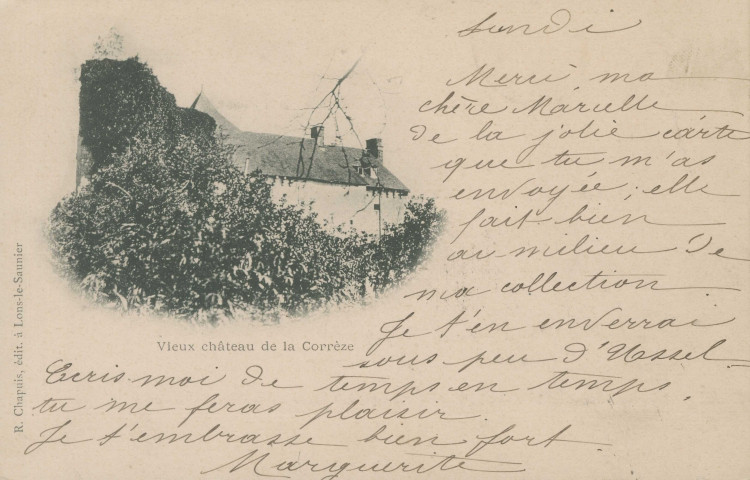 Lundi
Merci, ma
chère Marcelle
de la jolie carte
que tu m'as
envoyée; elle
fait bien
au milieu de
ma collection.
Je t'en enverrai
sous peu d'Ussel.
Ecris-moi de temps en temps,
tu me feras plaisir.
Je t'embrasse bien fort
Marguerite
Vieux château de la Corrèze
R. Chapuis, édit. à Lons-le-Saunier